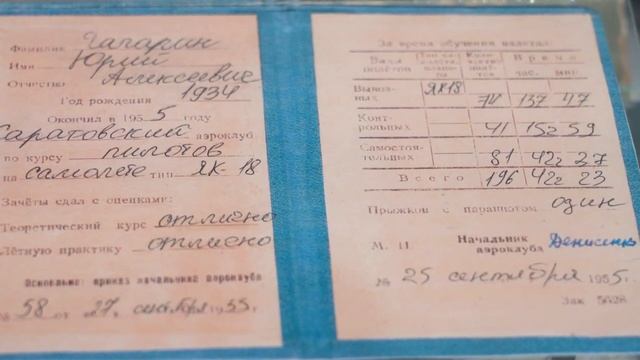 Фамилия Гагарин
Имя Юрий
Отчество Алексеевич
Год рождения 1934
Окончил в 1955 году
Саратовский аэроклуб
по курсу пилотов
на самолете тип ЯК-18
Зачёты сдал с оценками:
Теоретический курс отлично
Лётную практику отлично
Основание: приказ начальника аэроклуба
№ 58 от 27 сентября 1955 г.
За время обучения налетал:
Виды полётов
Количество полётов
Время
час. мин.
Вывозных ЯК18 74 137 47
Контрольных 41 152 59
Самостоятельных 81 422 27
Всего 196 422 23
Прыжков с парашютом один
М. П. Начальник аэроклуба Денисенко
№ 25 сентября 1955 г.
Зак 5628